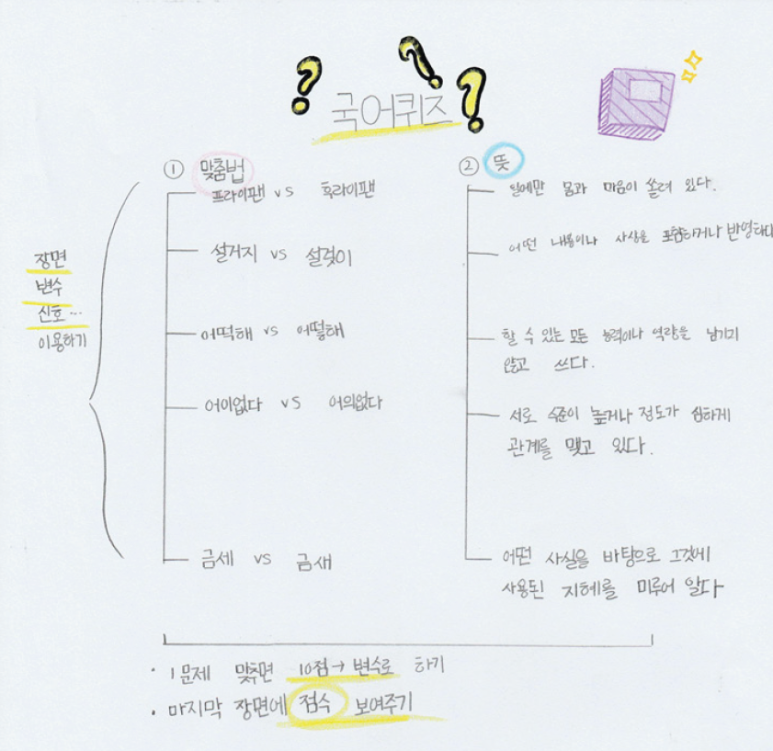 국어퀴즈
① 맞춤법
프라이팬 vs 후라이팬
설거지 vs 설겆이
어떡해 vs 어떻해
어이없다 vs 어의없다
금세 vs 금새
② 뜻
일에만 몸과 마음이 쏠려 있다.
어떤 내용이나 사상을 포함하거나 반영하다
할 수 있는 모든 능력이나 역량을 남기지
않고 쓰다.
서로 수준이 높거나 정도가 심하게
관계를 맺고 있다.
어떤 사실을 바탕으로 그것에
사용된 지혜를 미루어 알다
장면
변수
신호...
이용하기
· 1문제 맞추면 10점→변수로 하기
· 마지막 장면에 점수 보여주기